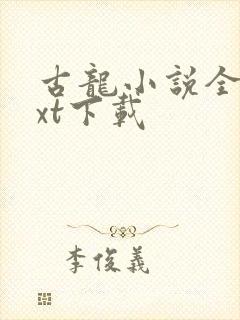 古龍小説全
xt下載
李俊義